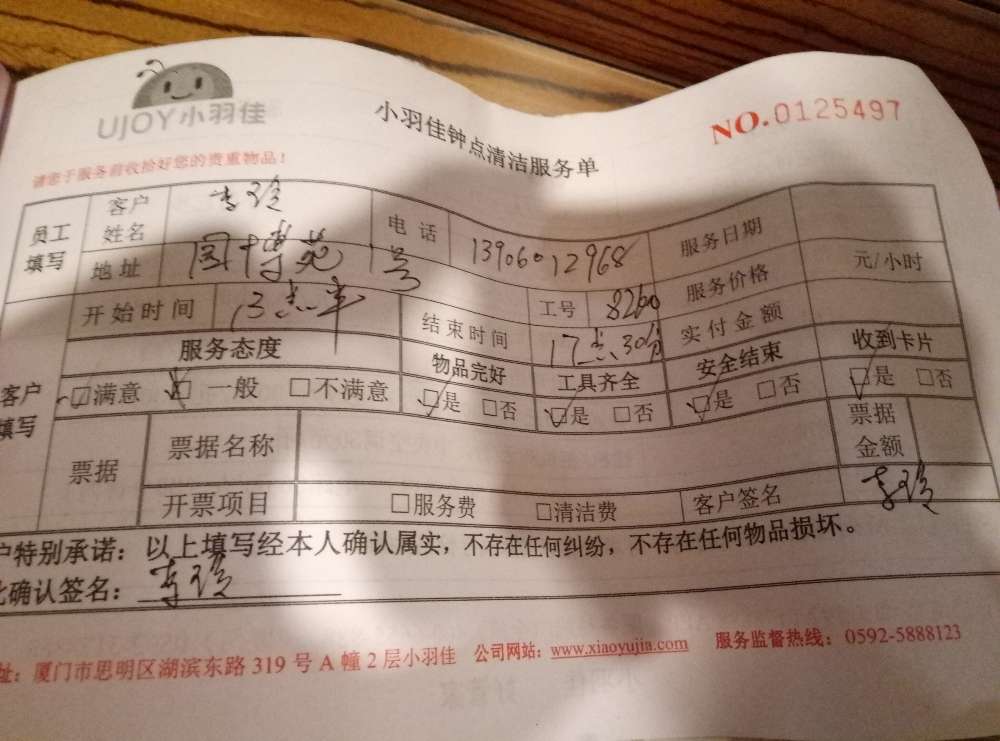 UJOY小羽佳
小羽佳钟点清洁服务单
NO.0125497
请您于服务前收拾好您的贵重物品！
员工填写
客户姓名 李玲
电话 13906012968
服务日期
地址 1号
工号 8260
服务价格 元/小时
开始时间 13点半
结束时间 17点30分
实付金额
客户填写
服务态度 物品完好 工具齐全 安全结束 收到卡片
☑满意 ☑一般 □不满意 ☑是 □否 ☑是 □否 ☑是 □否 ☑是 □否
票据 票据名称 票据金额
开票项目 □服务费 □清洁费 客户签名 李玲
户特别承诺：以上填写经本人确认属实，不存在任何纠纷，不存在任何物品损坏。
此确认签名：李玲
址：厦门市思明区湖滨东路319号A幢2层小羽佳 公司网站：www.xiaoyujia.com 服务监督热线：0592-5888123